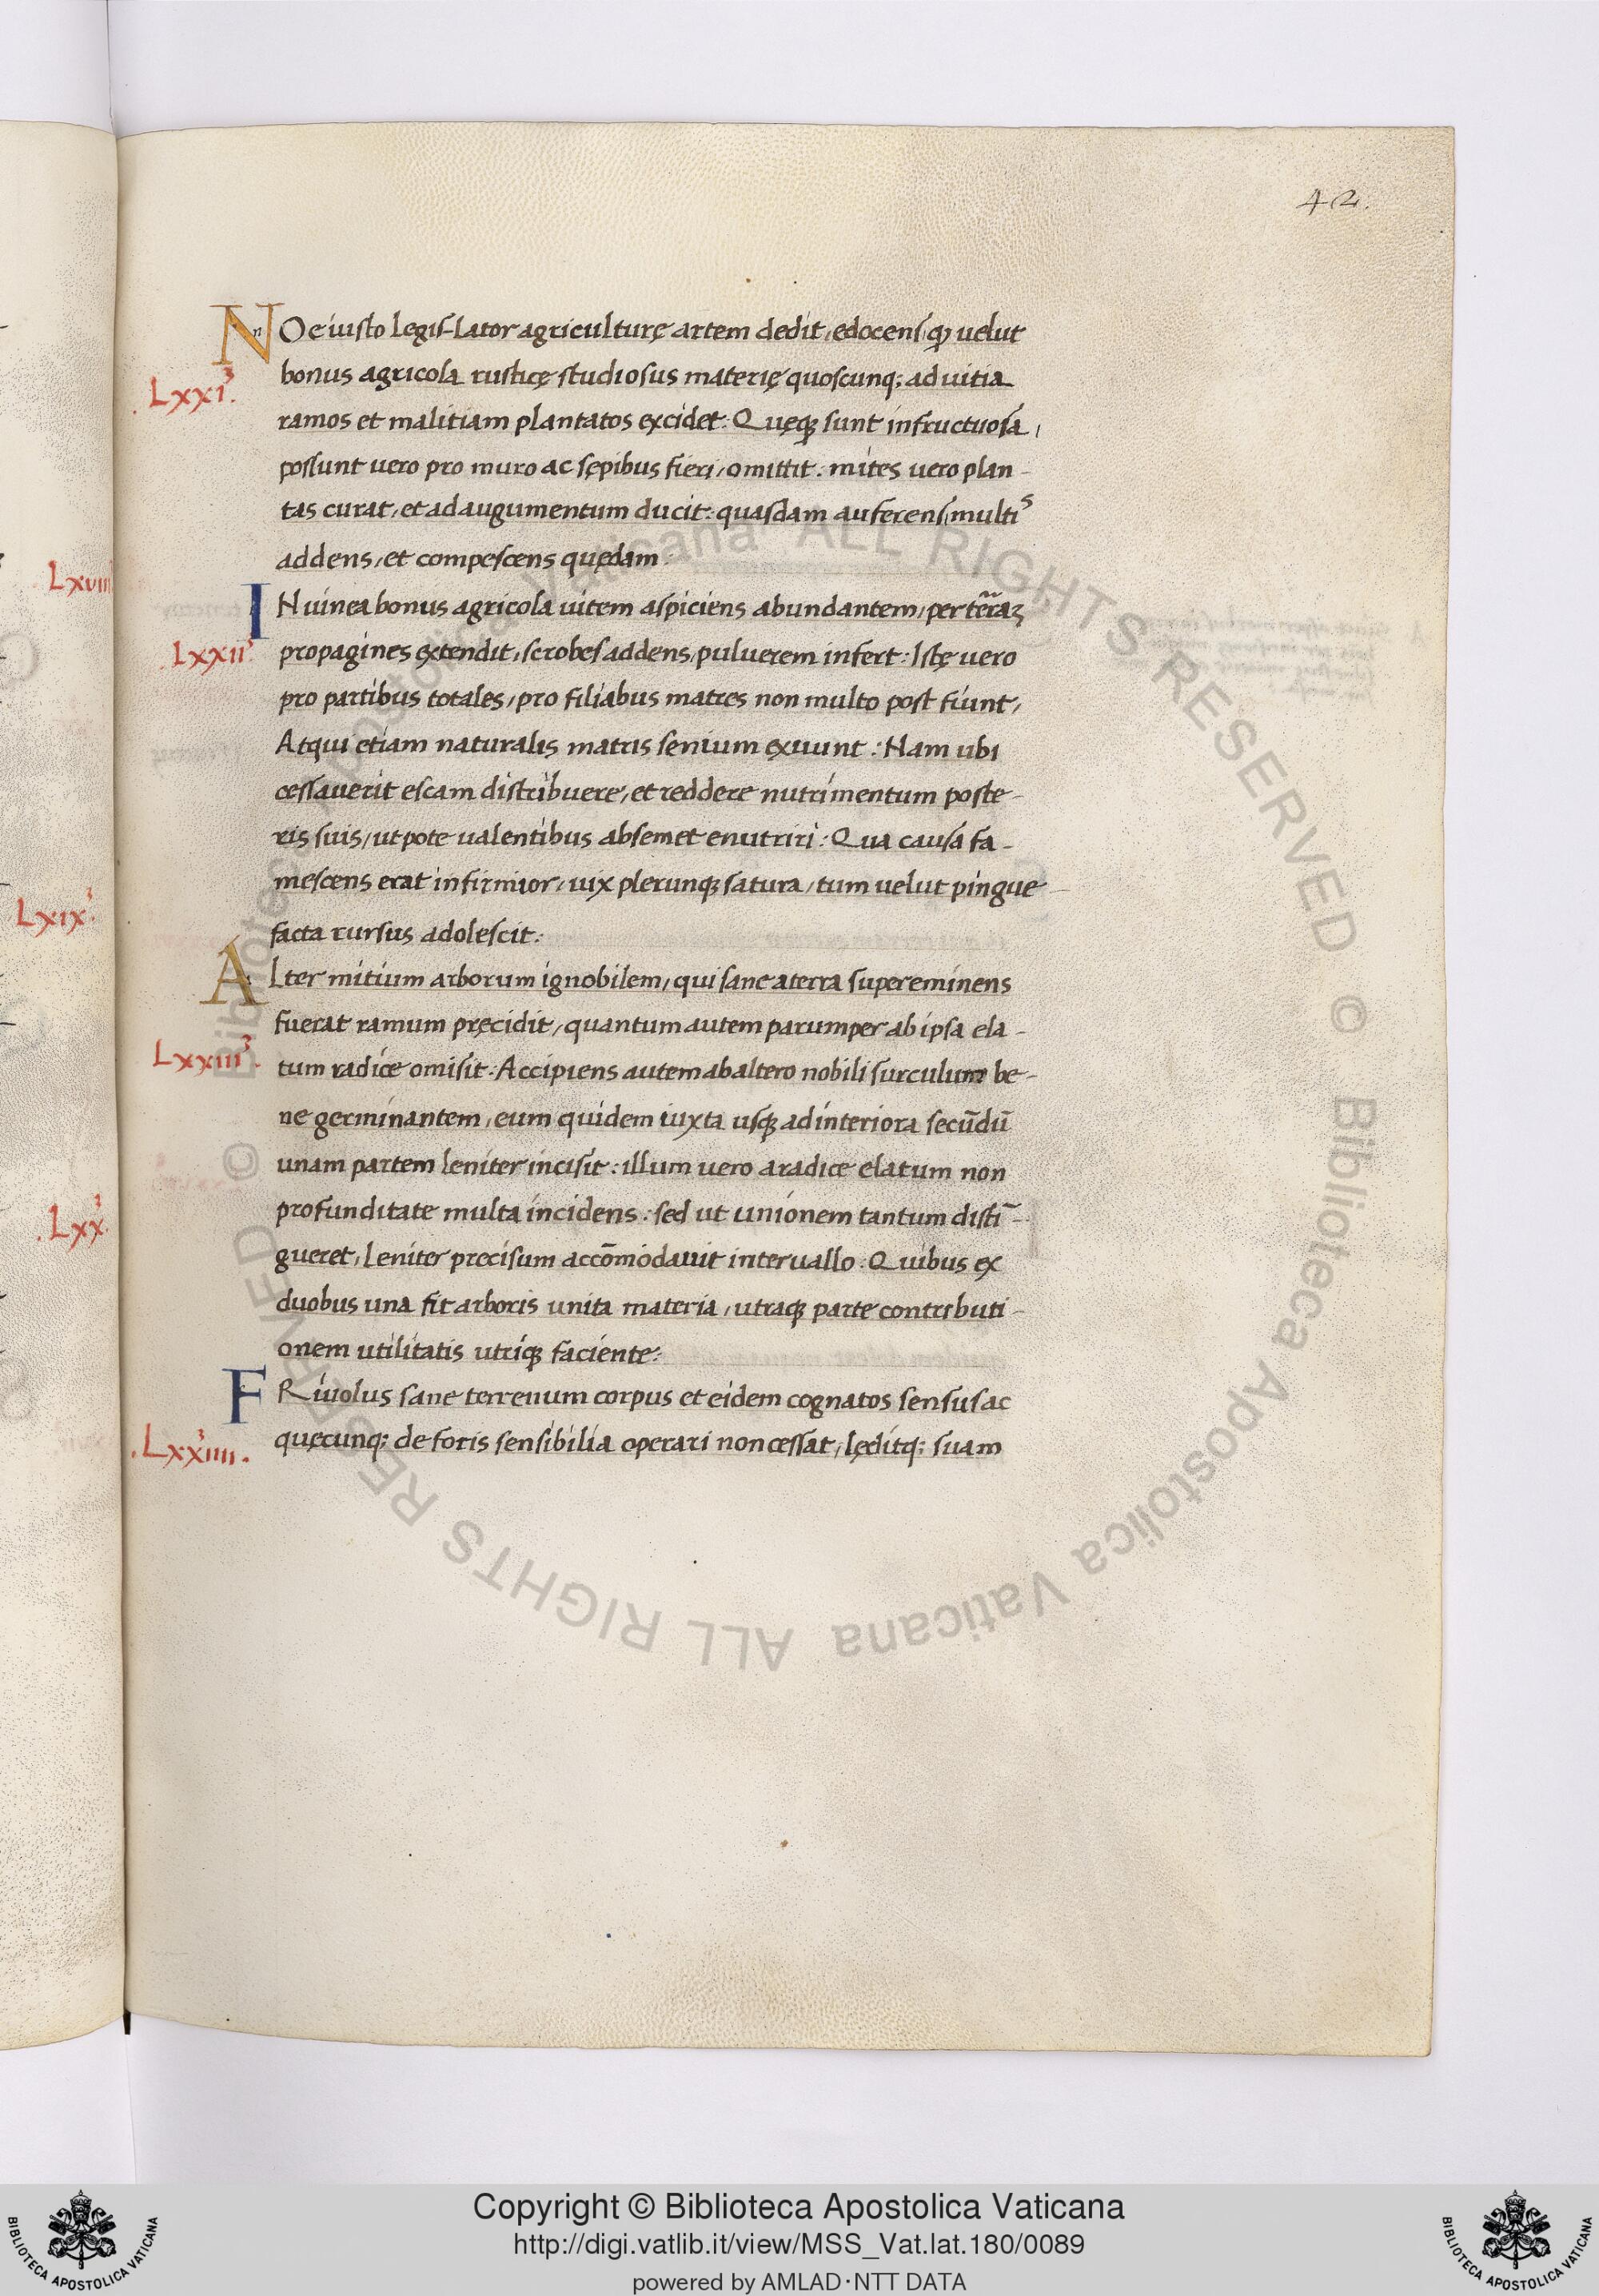 42.
NOe iusto legis-lator agriculturę artem dedit, edocens, ꝙ velut
Lxxi³.
bonus agricola rusticę studiosus materię quoscunq; ad uitia
ramos et malitiam plantatos excidet: Quęq; sunt infructuosa,
possunt uero pro muro ac sępibus fieri, omittit: mites uero plan-
tas curat, et ad augumentum ducit: quasdam auferens, multis
addens, et compescens quędam
Lxviii
IN uinea bonus agricola uitem aspiciens abundantem, per terraȝ
Lxxii³.
propagines extendit, scrobes addens, puluerem infert: Istę uero
pro partibus totales, pro filiabus matres non multo post fiunt,
Atqui etiam naturalis matris senium exuunt: Nam ubi
cessauerit escam distribuere, et reddere nutrimentum poste-
ris suis, utpote ualentibus absemet enutriri: Qua causa fa-
mescens erat infirmior, uix plerunq; satura, tum uelut pingue
Lxix³.
facta rursus adolescit:
ALter mitium arborum ignobilem, qui sane a terra supereminens
fuerat ramum pręcidit, quantum autem parumper ab ipsa ela-
Lxxiii³.
tum radice omisit: Accipiens autem ab altero nobili surculum be-
ne germinantem, eum quidem iuxta usq; ad interiora secūdū
unam partem leniter incisit: illum uero a radice elatum non
.Lxx³.
profunditate multa incidens: sed ut unionem tantum distī-
gueret, leniter precisum accōmodauit interuallo: Quibus ex
duobus una fit arboris unita materia, utraq; parte contributi-
onem utilitatis utriq; faciente:
FRiuolus sane terrenum corpus et eidem cognatos sensus ac
.Lxxiiii³.
quęcunq; de foris sensibilia operari non cessat, lęditq; suam
Copyright © Biblioteca Apostolica Vaticana
http://digi.vatlib.it/view/MSS_Vat.lat.180/0089
powered by AMLAD·NTT DATA
BIBLIOTECA APOSTOLICA VATICANA
BIBLIOTECA APOSTOLICA VATICANA
© Biblioteca Apostolica Vaticana ALL RIGHTS RESERVED © Biblioteca Apostolica Vaticana ALL RIGHTS RESERVED